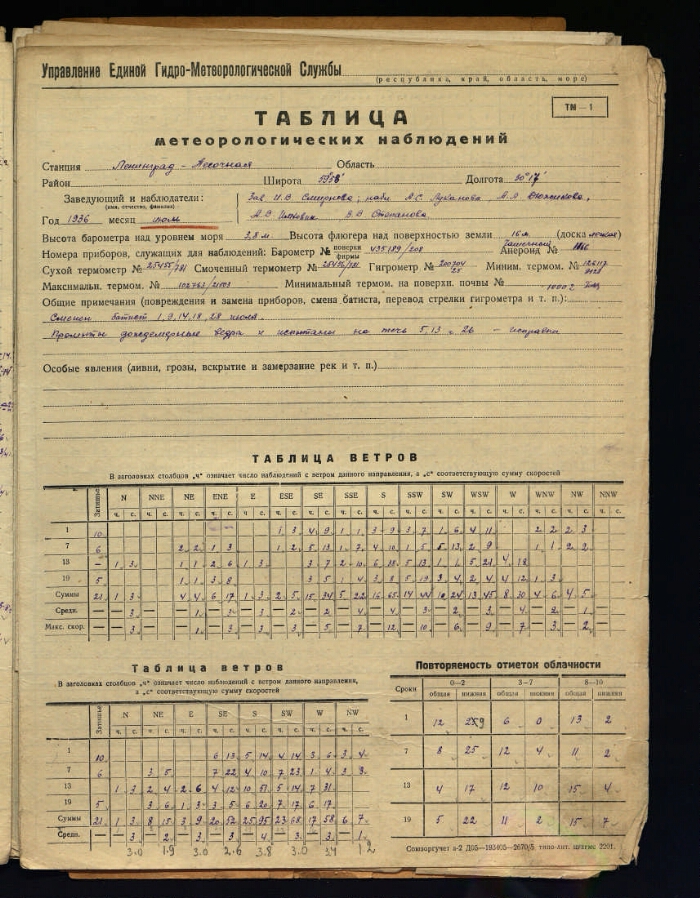 Управление Единой Гидро-Метеорологической Службы
(республика, край, область, море)
ТМ—1
ТАБЛИЦА
метеорологических наблюдений
Станция Ленинград - Лесотная Область
Район Широта 59°58' Долгота 30°17'
Заведующий и наблюдатели:
(имя, отчество, фамилия)
Зав. И.В. Смирнова; набл. А.С. Луканова А.А.
В.В. Степанова
Год 1936 месяц июль
Высота барометра над уровнем моря 3,8 м Высота флюгера над поверхностью земли 16 м (доска легкая)
Номера приборов, служащих для наблюдений: Барометр № поверки фирмы 435189/208 Анероид №
Сухой термометр № Смоченный термометр № Гигрометр № Миним. термом. №
Максимальн. термом. № Минимальный термом. на поверхн. почвы № 10002
Общие примечания (повреждения и замена приборов, смена батиста, перевод стрелки гигрометра и т. п.):
Сменен батист 1, 9, 14, 18, 28 июля.
дождемерные ведра и испытаны на течь 5, 13 и 26 — исправны
Особые явления (ливни, грозы, вскрытие и замерзание рек и т. п.)
ТАБЛИЦА ВЕТРОВ
В заголовках столбцов „ч" означает число наблюдений с ветром данного направления, а „с" соответствующую сумму скоростей
Затишье N NNE NE ENE E ESE SE SSE S SSW SW WSW W WNW NW NNW
ч. с. ч. с. ч. с. ч. с. ч. с. ч. с. ч. с. ч. с. ч. с. ч. с. ч. с. ч. с. ч. с. ч. с. ч. с. ч. с.
1 10 1 3 4 9 1 1 3 9 3 7 1 6 4 11 2 2 2 3
7 6 2 2 1 3 1 2 5 13 1 7 4 10 1 5 5 13 2 9 1 1 2 2
13 — 1 3 1 1 2 6 1 3 3 7 2 10 6 28 5 13 1 1 5 21 4 18
19 5 1 1 3 8 3 5 1 4 3 8 5 19 3 4 2 4 4 12 1 3
Суммы 21 1 3 4 4 6 17 1 3 2 5 15 34 5 22 16 14 44 10 24 13 45 8 30 4 6 4 5
Средн. — 3 — — 1 — 3 — 3 — 2 — 2 — 4 — 4 — 3 — 2 — 3 — 4 — 2 — 1 —
Макс. скор. — 3 — — 1 — 3 — 3 — 3 — 5 — 7 — 12 — 10 — 6 — 9 — 7 — 3 — 2 —
Таблица ветров
В заголовках столбцов „ч" означает число наблюдений с ветром данного направления,
а „с" соответствующую сумму скоростей
Затишье N NE E SE S SW W NW
ч. с. ч. с. ч. с. ч. с. ч. с. ч. с. ч. с. ч. с.
1 10 6 13 5 14 4 14 3 6 3 4
7 6 3 5 7 22 4 10 7 23 1 4 3 3
13 1 3 2 4 2 6 4 12 10 51 5 14 7 31
19 5 3 6 1 3 3 5 6 20 7 17 6 17
Суммы 21 1 3 8 15 3 9 20 52 25 95 23 68 17 58 6 7
Средн. — 3 — 2 — 3 — 3 — 4 — 3 — 3 — 1
3.0 1.9 3.0 2.6 3.8 3.0 3.4 1.2
Повторяемость отметок облачности
Сроки 0—2 3—7 8—10
общая нижняя общая нижняя общая нижняя
1 12 29 6 0 13 2
7 8 25 12 4 11 2
13 4 17 12 10 15 4
19 5 22 11 2 15 7